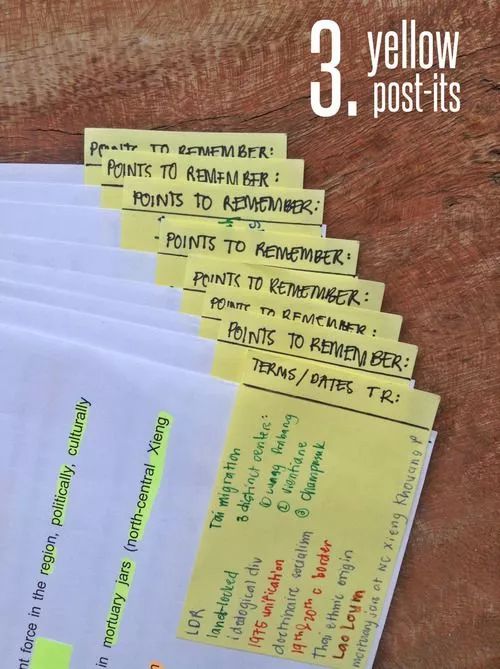 3. yellow
post-its
POINTS TO REMEMBER:
POINTS TO REMEMBER:
POINTS TO REMEMBER:
POINTS TO REMEMBER:
POINTS TO REMEMBER:
POINTS TO REMEMBER:
POINTS TO REMEMBER:
TERMS/DATES T.R:
Tai migration
3 distinct centers:
① Luang Prabang
② Vientiane
③ Champasak
LDR
land-locked
ideological div
1975 unification
doctrinaire socialism
19th & 20th c border
Thai ethnic origin
Lao Loum
mortuary jars at NC Xieng Khouang P
nt force in the region, politically, culturally
in mortuary jars (north-central Xieng